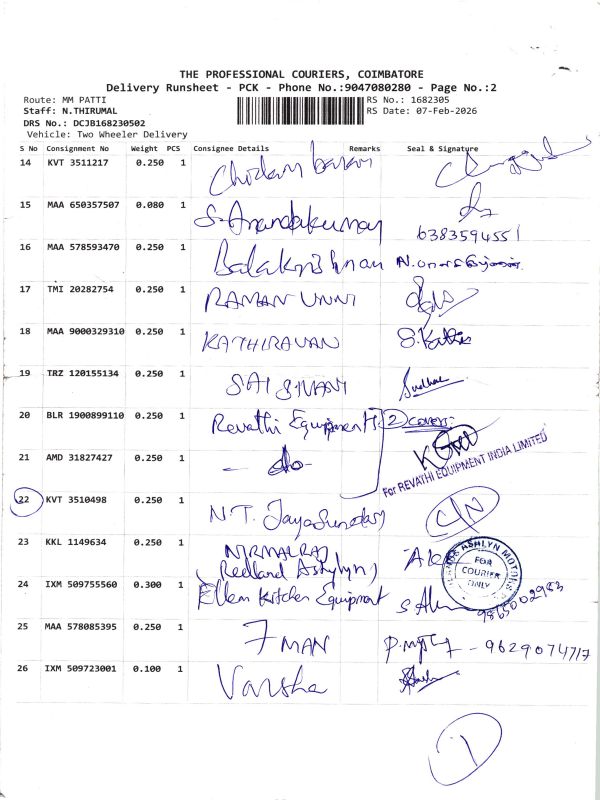 THE PROFESSIONAL COURIERS, COIMBATORE
Delivery Runsheet - PCK - Phone No.:9047080280 - Page No.:2
Route: MM PATTI RS No.: 1682305
Staff: N.THIRUMAL RS Date: 07-Feb-2026
DRS No.: DCJB168230502
Vehicle: Two Wheeler Delivery
S No Consignment No Weight PCS Consignee Details Remarks Seal & Signature
14 KVT 3511217 0.250 1 Chidambaram
15 MAA 650357507 0.080 1 S. Anandakumar 6383594551
16 MAA 578593470 0.250 1 Balakrishnan
17 TMI 20282754 0.250 1 RAMAN UNNI
18 MAA 9000329310 0.250 1 KATHIRAVAN
19 TRZ 120155134 0.250 1 SAI SIVANI
20 BLR 1900899110 0.250 1 Revathi Equipment 2 covers
21 AMD 31827427 0.250 1 - do -
For REVATHI EQUIPMENT INDIA LIMITED
22 KVT 3510498 0.250 1 N T. Jayasundary C/N
23 KKL 1149634 0.250 1 NIRMALRAJ
ASHLYN MOTORS
FOR COURIER ONLY
24 IXM 509755560 0.300 1 Ellen Kitchen Equipment 9865002983
25 MAA 578085395 0.250 1 7 MAN - 9629074717
26 IXM 509723001 0.100 1 Varsha
1